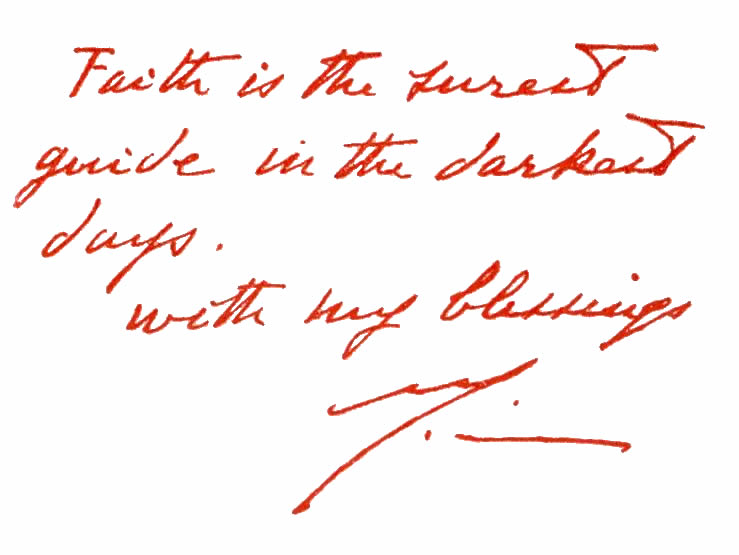 Faith is the surest
guide in the darkest
days.
with my blessings